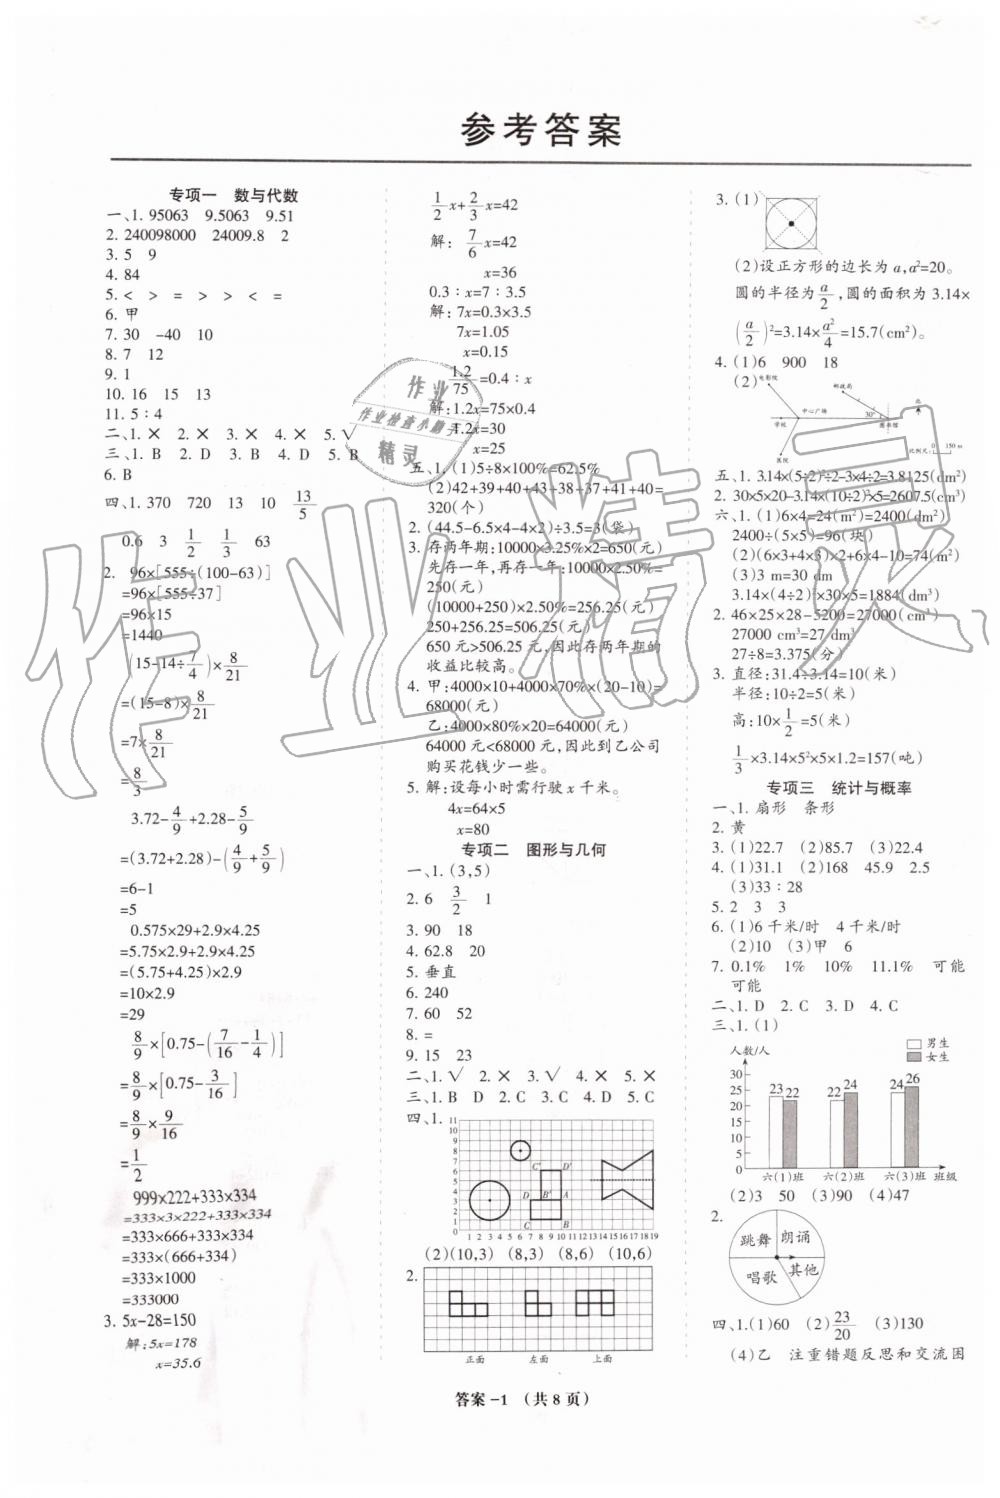 参考答案
专项一　数与代数
一、1. 95063　9.5063　9.51
2. 240098000　24009.8　2
3. 5　9
4. 84
5. <　>　=　>　>　<　=
6. 甲
7. 30　-40　10
8. 7　12
9. 1
10. 16　15　13
11. 5∶4
二、1. ×　2. ×　3. ×　4. ×　5. √
三、1. B　2. D　3. B　4. D　5. B
6. B
四、1. 370　720　13　10　13/5
0.6　3　1/2　1/3　63
2. 96×[555÷(100-63)]
=96×[555÷37]
=96×15
=1440
(15-14÷7/4)×8/21
=(15-8)×8/21
=7×8/21
=8/3
3.72-4/9+2.28-5/9
=(3.72+2.28)-(4/9+5/9)
=6-1
=5
0.575×29+2.9×4.25
=5.75×2.9+2.9×4.25
=(5.75+4.25)×2.9
=10×2.9
=29
8/9×[0.75-(7/16-1/4)]
=8/9×[0.75-3/16]
=8/9×9/16
=1/2
999×222+333×334
=333×3×222+333×334
=333×666+333×334
=333×(666+334)
=333×1000
=333000
3. 5x-28=150
解:5x=178
x=35.6
1/2x+2/3x=42
解: 7/6x=42
x=36
0.3∶x=7∶3.5
解:7x=0.3×3.5
7x=1.05
x=0.15
1.2/75=0.4∶x
解:1.2x=75×0.4
1.2x=30
x=25
五、1. (1)5÷8×100%=62.5%
(2)42+39+40+38+40+42+41+40=
320(个)
2. (44.5-6.5×4-4×2)÷3.5=3(袋)
3. 存两年期:10000×3.25%×2=650(元)
先存一年,再存一年:10000×2.50%=
250(元)
(10000+250)×2.50%=256.25(元)
250+256.25=506.25(元)
650元>506.25元,因此存两年期的
收益比较高。
4. 甲:4000×10+4000×70%×(20-10)=
68000(元)
乙:4000×80%×20=64000(元)
64000元<68000元,因此到乙公司
购买花钱少一些。
5. 解:设每小时需行驶x千米。
4x=64×5
x=80
专项二　图形与几何
一、1. (3,5)
2. 6　3/2　1
3. 90　18
4. 62.8　20
5. 垂直
6. 240
7. 60　52
8. =
9. 15　23
二、1. √　2. ×　3. √　4. ×　5. ×
三、1. B　D　2. C　3. C　4. D　5. C
四、1.
11
10
9
8
7
6
5
4
3
2
1
0
C′　D′
D　B′　A
C　B
1 2 3 4 5 6 7 8 9 10 11 12 13 14 15 16 17 18 19
(2)(10,3)　(8,3)　(8,6)　(10,6)
2.
正面　左面　上面
3. (1)
(2)设正方形的边长为a,a²=20。
圆的半径为a/2,圆的面积为3.14×
(a/2)²=3.14×a²/4=15.7(cm²)。
4. (1)6　900　18
(2)
电影院　邮政局　北
中心广场　30°
学校　图书馆
医院　比例尺: 0　150 m
五、1. 3.14×(5÷2)²÷2-3×4÷2=3.8125(dm²)
2. 30×5×20-3.14×(10÷2)²×5=2607.5(cm³)
六、1. (1)6×4=24(m²)=2400(dm²)
2400÷(5×5)=96(块)
(2)(6×3+4×3)×2+6×4-10=74(m²)
(3)3 m=30 dm
3.14×(4÷2)²×30×5=1884(dm³)
2. 46×25×28-5200=27000(cm³)
27000 cm³=27 dm³
27÷8=3.375(分)
3. 直径:31.4÷3.14=10(米)
半径:10÷2=5(米)
高:10×1/2=5(米)
1/3×3.14×5²×5×1.2=157(吨)
专项三　统计与概率
一、1. 扇形　条形
2. 黄
3. (1)22.7　(2)85.7　(3)22.4
4. (1)31.1　(2)168　45.9　2.5
(3)33∶28
5. 2　3　3
6. (1)6千米/时　4千米/时
(2)10　(3)甲　6
7. 0.1%　1%　10%　11.1%　可能
可能
二、1. D　2. C　3. D　4. C
三、1. (1)
人数/人　男生
女生
30
25
20
15
10
5
0
23 22　22 24　24 26
六(1)班　六(2)班　六(3)班　班级
(2)3　50　(3)90　(4)47
2.
跳舞　朗诵
唱歌　其他
四、1.(1)60　(2)23/20　(3)130
(4)乙　注重错题反思和交流困
答案-1　(共8页)
作业
作业检查小助手
精灵
作业精灵